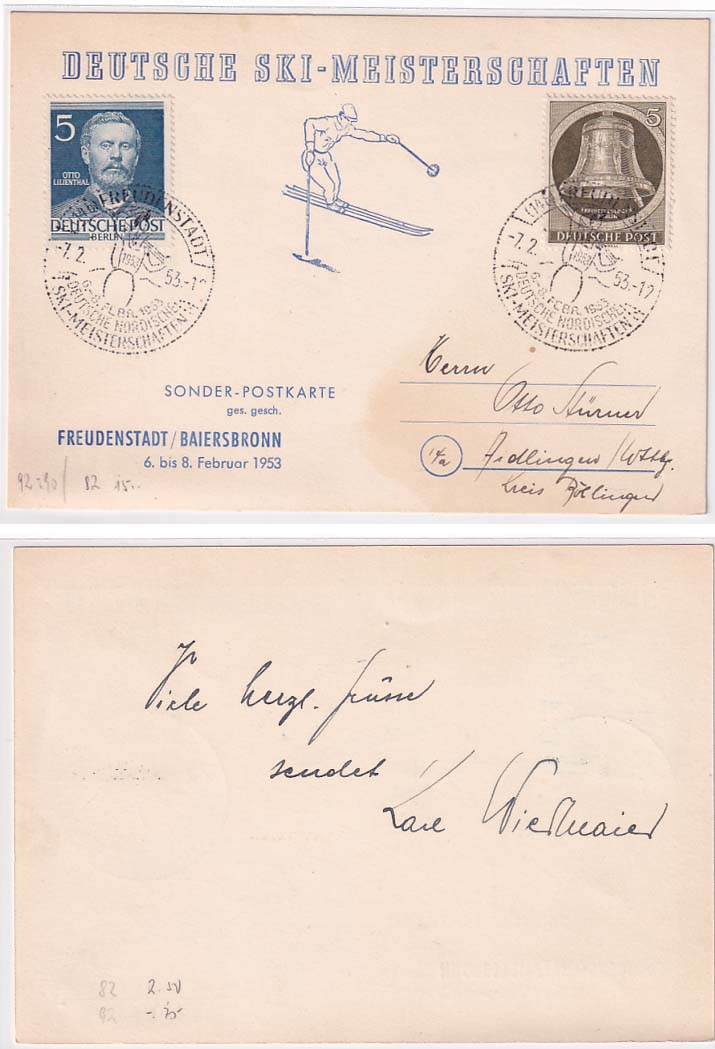 DEUTSCHE SKI-MEISTERSCHAFTEN
5
OTTO
LILIENTHAL
DEUTSCHE POST
BERLIN
5
DEUTSCHE POST
FREUDENSTADT
-7.2. 53.-12
1953
6.-8. FEBR. 1953
DEUTSCHE NORDISCHE
SKI-MEISTERSCHAFTEN
FREUDENSTADT
-7.2. 53.-12
6.-8. FEBR. 1953
DEUTSCHE NORDISCHE
SKI-MEISTERSCHAFTEN
SONDER-POSTKARTE
ges. gesch.
FREUDENSTADT/BAIERSBRONN
6. bis 8. Februar 1953
Herrn
Otto Stürner
14a Aidlingen/Wttbg.
Kreis Böblingen
82 15.-
Viele herzl. Grüsse
sendet
Karl Wiedmaier
82 2.50
92